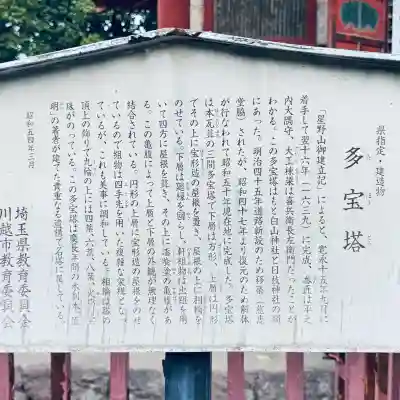 県指定・建造物
多宝塔
「星野山御建立記」によると、寛永十五年九月に
着手して翌十六年(一六三九)に完成、番匠は平之
内大隅守、大工棟梁は喜兵衛長左衛門だったことが
わかる。この多宝塔はもと白山神社と日枝神社の間
にあった。明治四十五年道路新設のため移築(慈恵
堂脇)されたが、昭和四十七年より復元のため解体
が行なわれて昭和五十年現在地に完成した。多宝塔
は本瓦葺の三間多宝塔で下層は方形、上層は円形
でその上に宝形造の屋根を置き、屋根の上に相輪を
のせている。下層は廻縁を回らし、軒組物は出組を用
いて四方に屋根を葺き、その上に漆喰塗の亀腹があ
る。この亀腹によって上層と下層の外観が無理なく
結合されている。円形の上層に宝形造の屋根をのせ
ているので組物は四手先を用いた複雑な架構となっ
ているが、これも美事に調和している。相輪は塔の
頂上の飾りで九輪の上には四葉、六葉、八葉、
珠がのっている。この多宝塔は慶長年間の木割本
明」の著者が建てた貴重なる遺構で名塔に属している。
昭和五四年三月
埼玉県教育委員会
川越市教育委員会